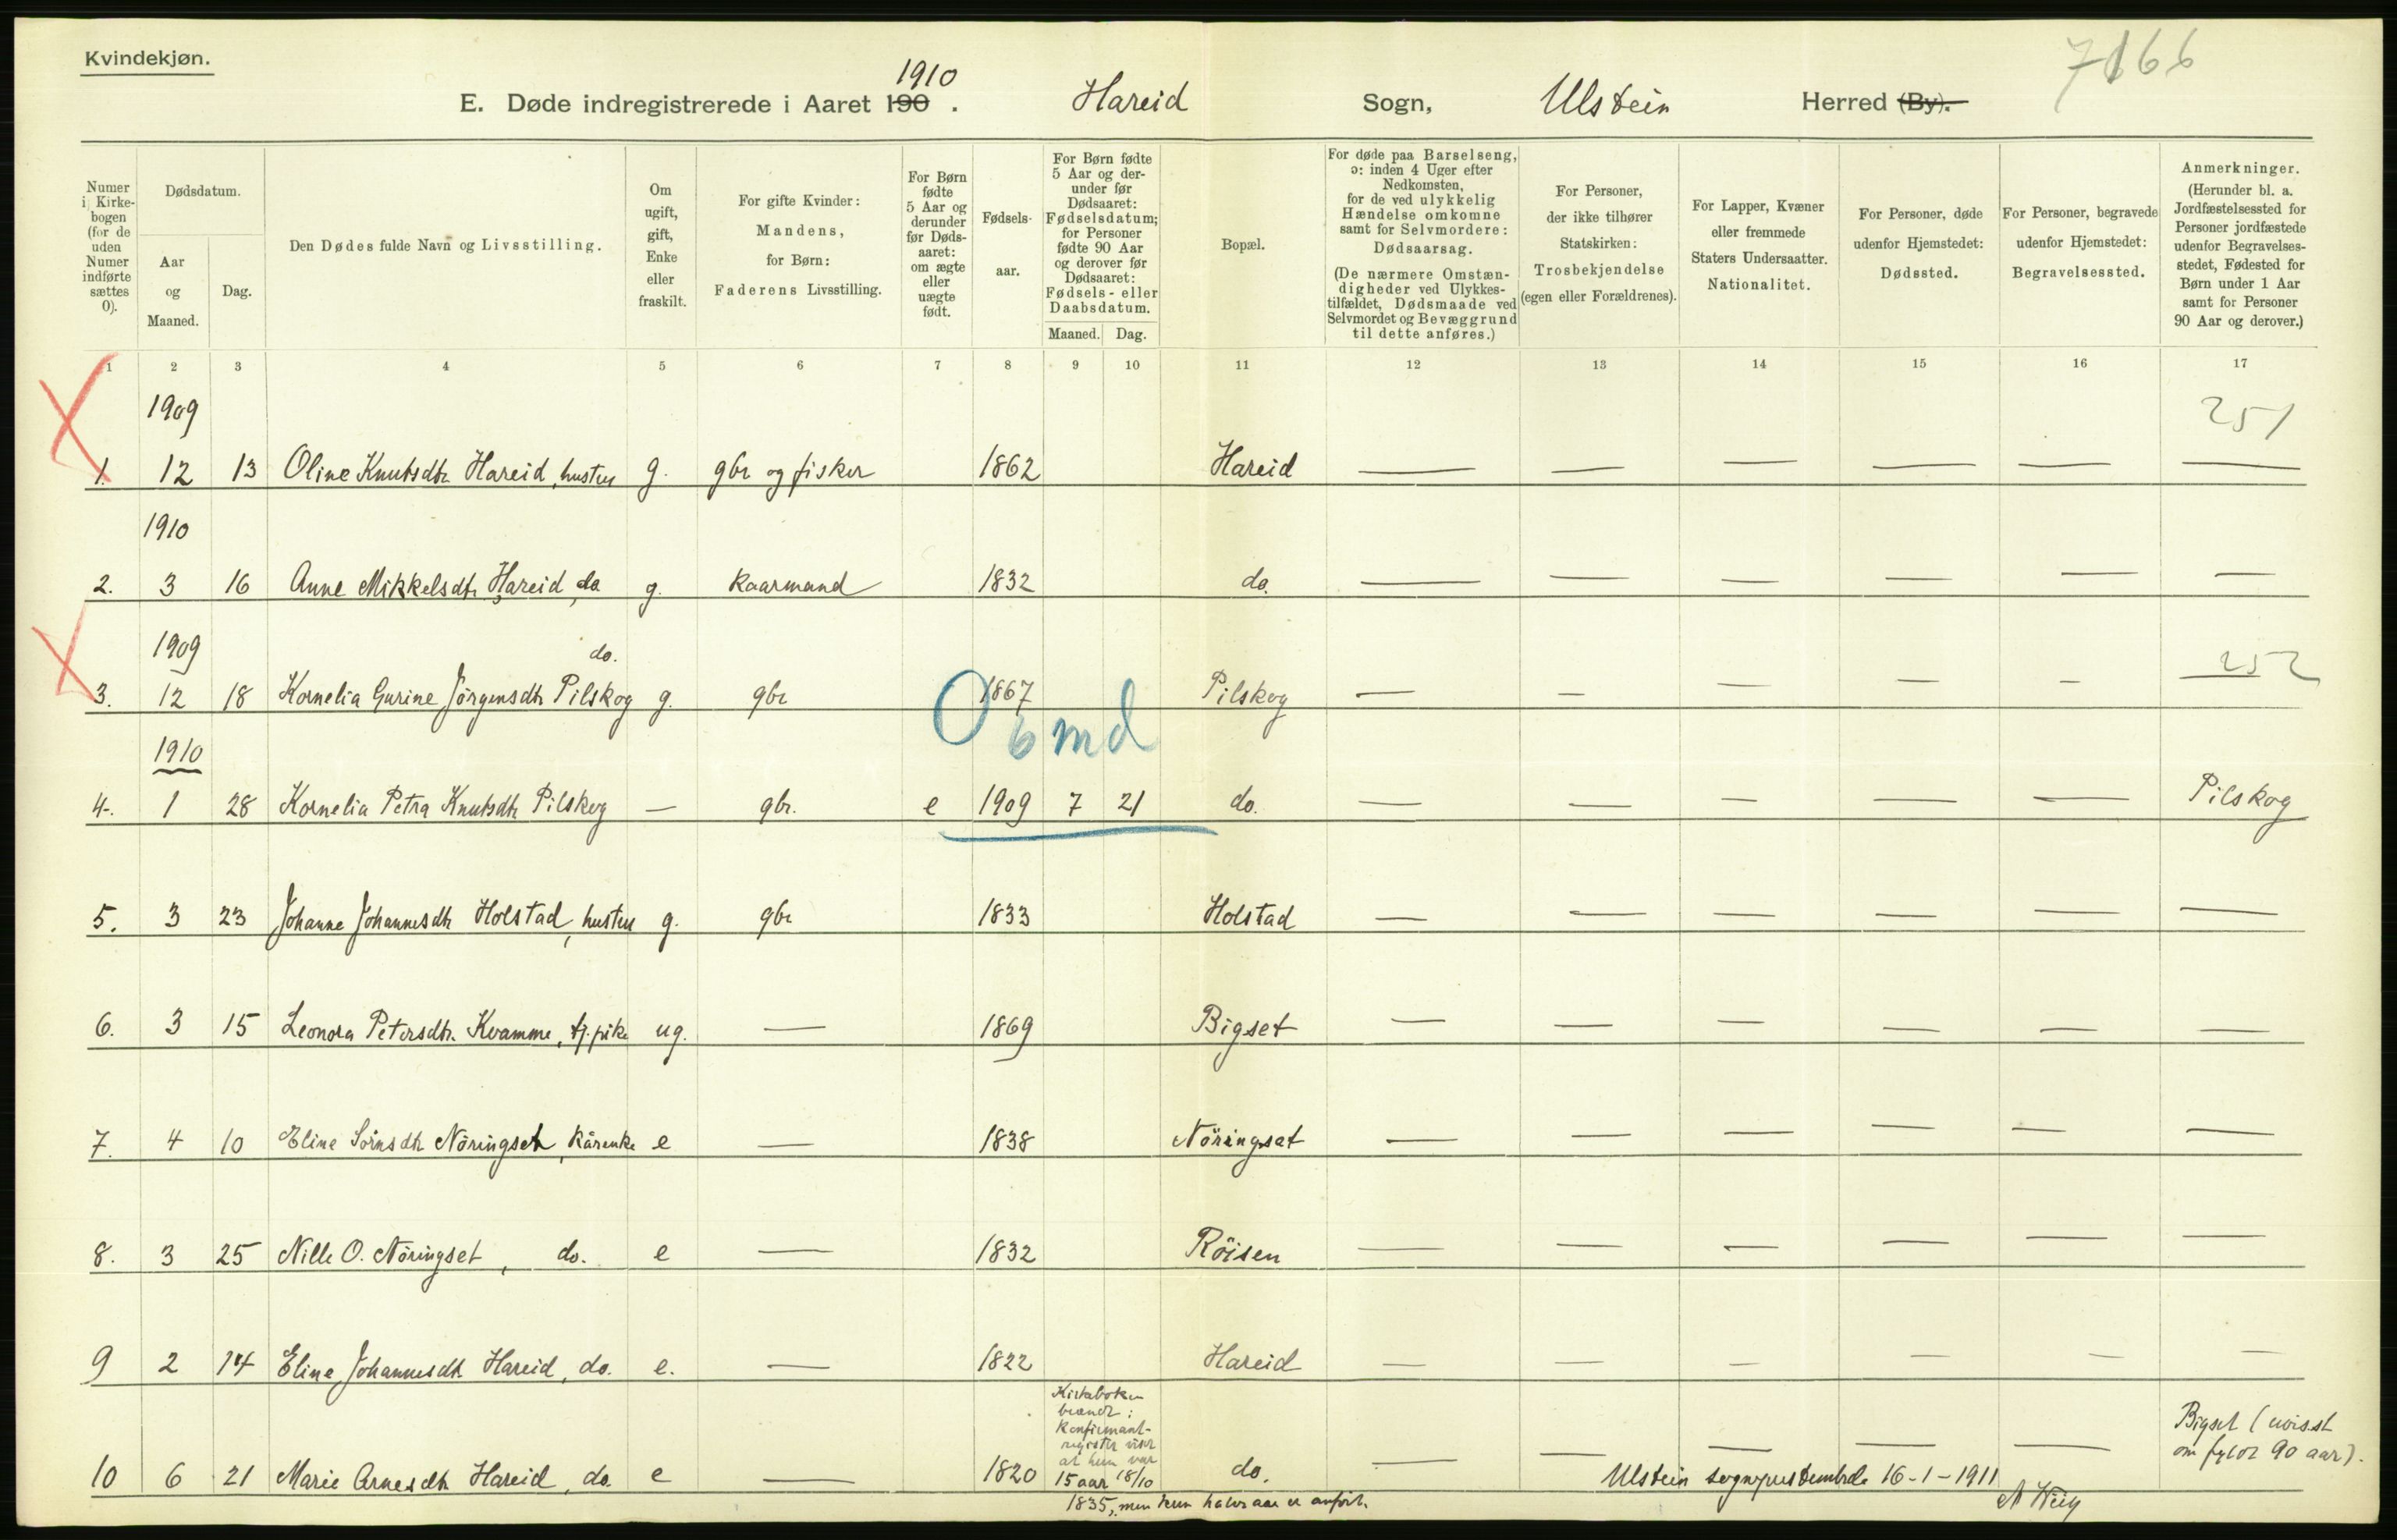 Kvindekjøn.
7166
E. Døde indregistrerede i Aaret 190 1910. Hareid Sogn, Ulstein Herred (By).
Numer i Kirkebogen (for de uden Numer indførte sættes 0).
Dødsdatum.
Aar og Maaned.
Dag.
Den Dødes fulde Navn og Livsstilling.
Om ugift, gift, Enke eller fraskilt.
For gifte Kvinder: Mandens, for Børn: Faderens Livsstilling.
For Børn fødte 5 Aar og derunder før Dødsaaret: om ægte eller uægte født.
Fødselsaar.
For Børn fødte 5 Aar og derunder før Dødsaaret: Fødselsdatum; for Personer fødte 90 Aar og derover før Dødsaaret: Fødsels- eller Daabsdatum.
Maaned. Dag.
Bopæl.
For døde paa Barselseng, ɔ: inden 4 Uger efter Nedkomsten, for de ved ulykkelig Hændelse omkomne samt for Selvmordere: Dødsaarsag.
(De nærmere Omstændigheder ved Ulykkestilfældet, Dødsmaade ved Selvmordet og Bevæggrund til dette anføres.)
For Personer, der ikke tilhører Statskirken: Trosbekjendelse (egen eller Forældrenes).
For Lapper, Kvæner eller fremmede Staters Undersaatter. Nationalitet.
For Personer, døde udenfor Hjemstedet: Dødssted.
For Personer, begravede udenfor Hjemstedet: Begravelsessted.
Anmerkninger.
(Herunder bl. a. Jordfæstelsessted for Personer jordfæstede udenfor Begravelsesstedet, Fødested for Børn under 1 Aar samt for Personer 90 Aar og derover.)
1 2 3 4 5 6 7 8 9 10 11 12 13 14 15 16 17
1909 251
1. 12 13 Oline Knutsdtr Hareid, hustru g. gbr og fisker 1862 Hareid — — — — — —
1910
2. 3 16 Anne Mikkelsdtr Hareid, do g. kaarmand 1832 do. — — — — — —
1909 do. 252
3. 12 18 Kornelia Gurine Jörgensdtr Pilskog g. gbr 1867 Pilskog — — — — —
1910 0 6 md
4. 1 28 Kornelia Petra Knutsdtr Pilskog — gbr. e 1909 7 21 do. — — — — — Pilskog
5. 3 23 Johanne Johannesdtr Holstad, hustru g. gbr 1833 Holstad — — — — — —
6. 3 15 Leonora Petersdtr. Kvamme, tj.pike ug. — 1869 Bigset — — — — — —
7. 4 10 Eline Sörnsdtr Nöringset, kårenke e — 1838 Nöringset — — — — — —
8. 3 25 Nille O. Nöringset, do. e — 1832 Röisen — — — — — —
9 2 14 Eline Johannesdtr Hareid, do. e. — 1822 Hareid — — — — — —
10 6 21 Marie Arnesdtr Hareid, do. e — 1820 do. — — — — —
Kirkeboken
brændt;
Konfirmant-
register viser
at hun var
15 aar 18/10
1835, men kun halvt aar er anfört.
Bigset (uvisst
om fyldt 90 aar).
Ulstein sogneprestembede 16-1-1911